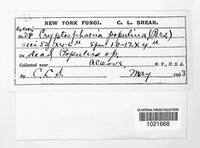 NEW YORK FUNGI. C. L. SHEAR.
No. 58 Cryptosphaeria populina (Pers)
asci 50 x 4-6 u spor 10-12 x 4 u
On dead Populus sp.
Collected near Alcove N. Y., U.S.A.
By C.L.S. May 1893
US NATIONAL FUNGUS COLLECTIONS
1021668